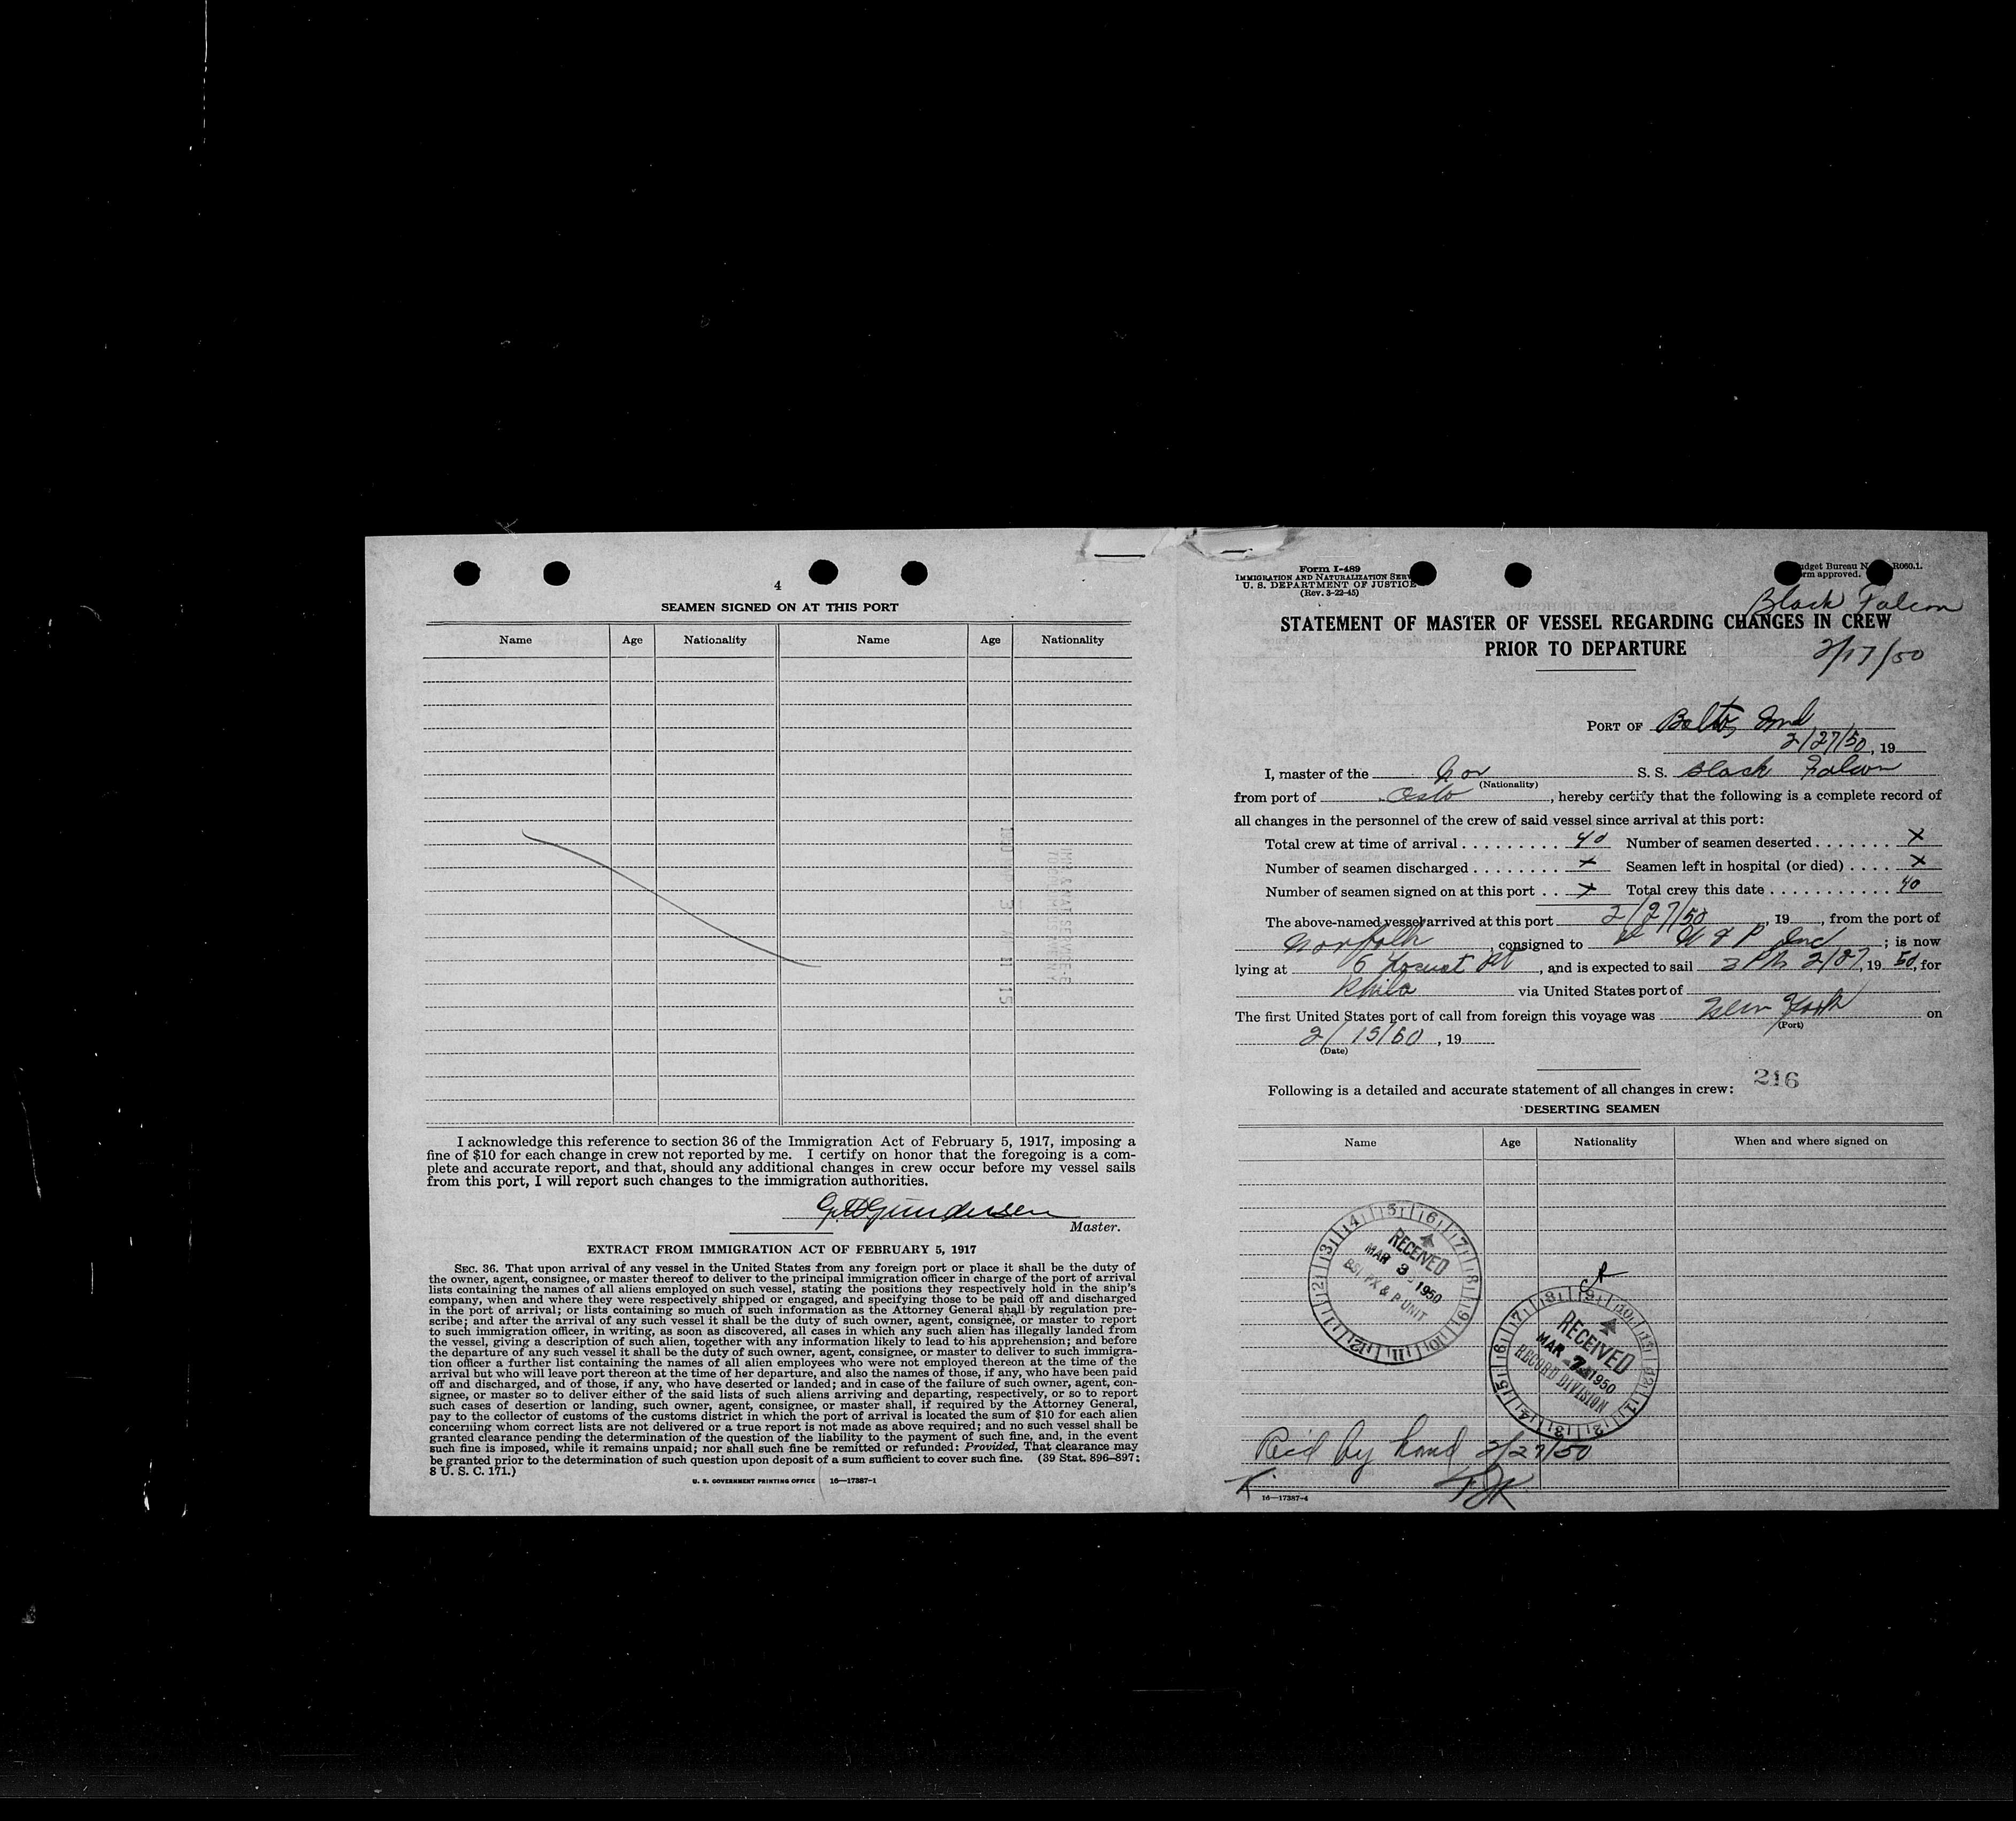 4
SEAMEN SIGNED ON AT THIS PORT
Name Age Nationality Name Age Nationality
I acknowledge this reference to section 36 of the Immigration Act of February 5, 1917, imposing a
fine of $10 for each change in crew not reported by me. I certify on honor that the foregoing is a com-
plete and accurate report, and that, should any additional changes in crew occur before my vessel sails
from this port, I will report such changes to the immigration authorities.
Gundersen
Master.
EXTRACT FROM IMMIGRATION ACT OF FEBRUARY 5, 1917
SEC. 36. That upon arrival of any vessel in the United States from any foreign port or place it shall be the duty of
the owner, agent, consignee, or master thereof to deliver to the principal immigration officer in charge of the port of arrival
lists containing the names of all aliens employed on such vessel, stating the positions they respectively hold in the ship's
company, when and where they were respectively shipped or engaged, and specifying those to be paid off and discharged
in the port of arrival; or lists containing so much of such information as the Attorney General shall by regulation pre-
scribe; and after the arrival of any such vessel it shall be the duty of such owner, agent, consignee, or master to report
to such immigration officer, in writing, as soon as discovered, all cases in which any such alien has illegally landed from
the vessel, giving a description of such alien, together with any information likely to lead to his apprehension; and before
the departure of any such vessel it shall be the duty of such owner, agent, consignee, or master to deliver to such immigra-
tion officer a further list containing the names of all alien employees who were not employed thereon at the time of the
arrival but who will leave port thereon at the time of her departure, and also the names of those, if any, who have been paid
off and discharged, and of those, if any, who have deserted or landed; and in case of the failure of such owner, agent, con-
signee, or master so to deliver either of the said lists of such aliens arriving and departing, respectively, or so to report
such cases of desertion or landing, such owner, agent, consignee, or master shall, if required by the Attorney General,
pay to the collector of customs of the customs district in which the port of arrival is located the sum of $10 for each alien
concerning whom correct lists are not delivered or a true report is not made as above required; and no such vessel shall be
granted clearance pending the determination of the question of the liability to the payment of such fine, and, in the event
such fine is imposed, while it remains unpaid; nor shall such fine be remitted or refunded: Provided, That clearance may
be granted prior to the determination of such question upon deposit of a sum sufficient to cover such fine. (39 Stat. 896-897;
8 U. S. C. 171.)
U. S. GOVERNMENT PRINTING OFFICE 16—17387-1
Form I-489
IMMIGRATION AND NATURALIZATION SERV
U. S. DEPARTMENT OF JUSTICE
(Rev. 3-22-45)
udget Bureau N R060.1.
rm approved.
Black Falcon
STATEMENT OF MASTER OF VESSEL REGARDING CHANGES IN CREW
PRIOR TO DEPARTURE
2/17/50
PORT OF Balto, Md
2/27/50, 19
I, master of the Nor S. S. Black Falcon
(Nationality)
from port of Oslo, hereby certify that the following is a complete record of
all changes in the personnel of the crew of said vessel since arrival at this port:
Total crew at time of arrival 40 Number of seamen deserted X
Number of seamen discharged X Seamen left in hospital (or died) X
Number of seamen signed on at this port X Total crew this date 40
The above-named vessel arrived at this port 2/27/50, 19, from the port of
Norfolk, consigned to & P Inc; is now
lying at 6 Locust Pt, and is expected to sail 2/27, 19 50, for
Phila via United States port of
The first United States port of call from foreign this voyage was New York on
(Port)
2/15/50, 19
(Date)
Following is a detailed and accurate statement of all changes in crew: 216
DESERTING SEAMEN
Name Age Nationality When and where signed on
RECEIVED
MAR 3 1950
BSI PX & P UNIT
RECEIVED
MAR 7 1950
RECORD DIVISION
Rec'd by hand 2/27/50
16—17387-4